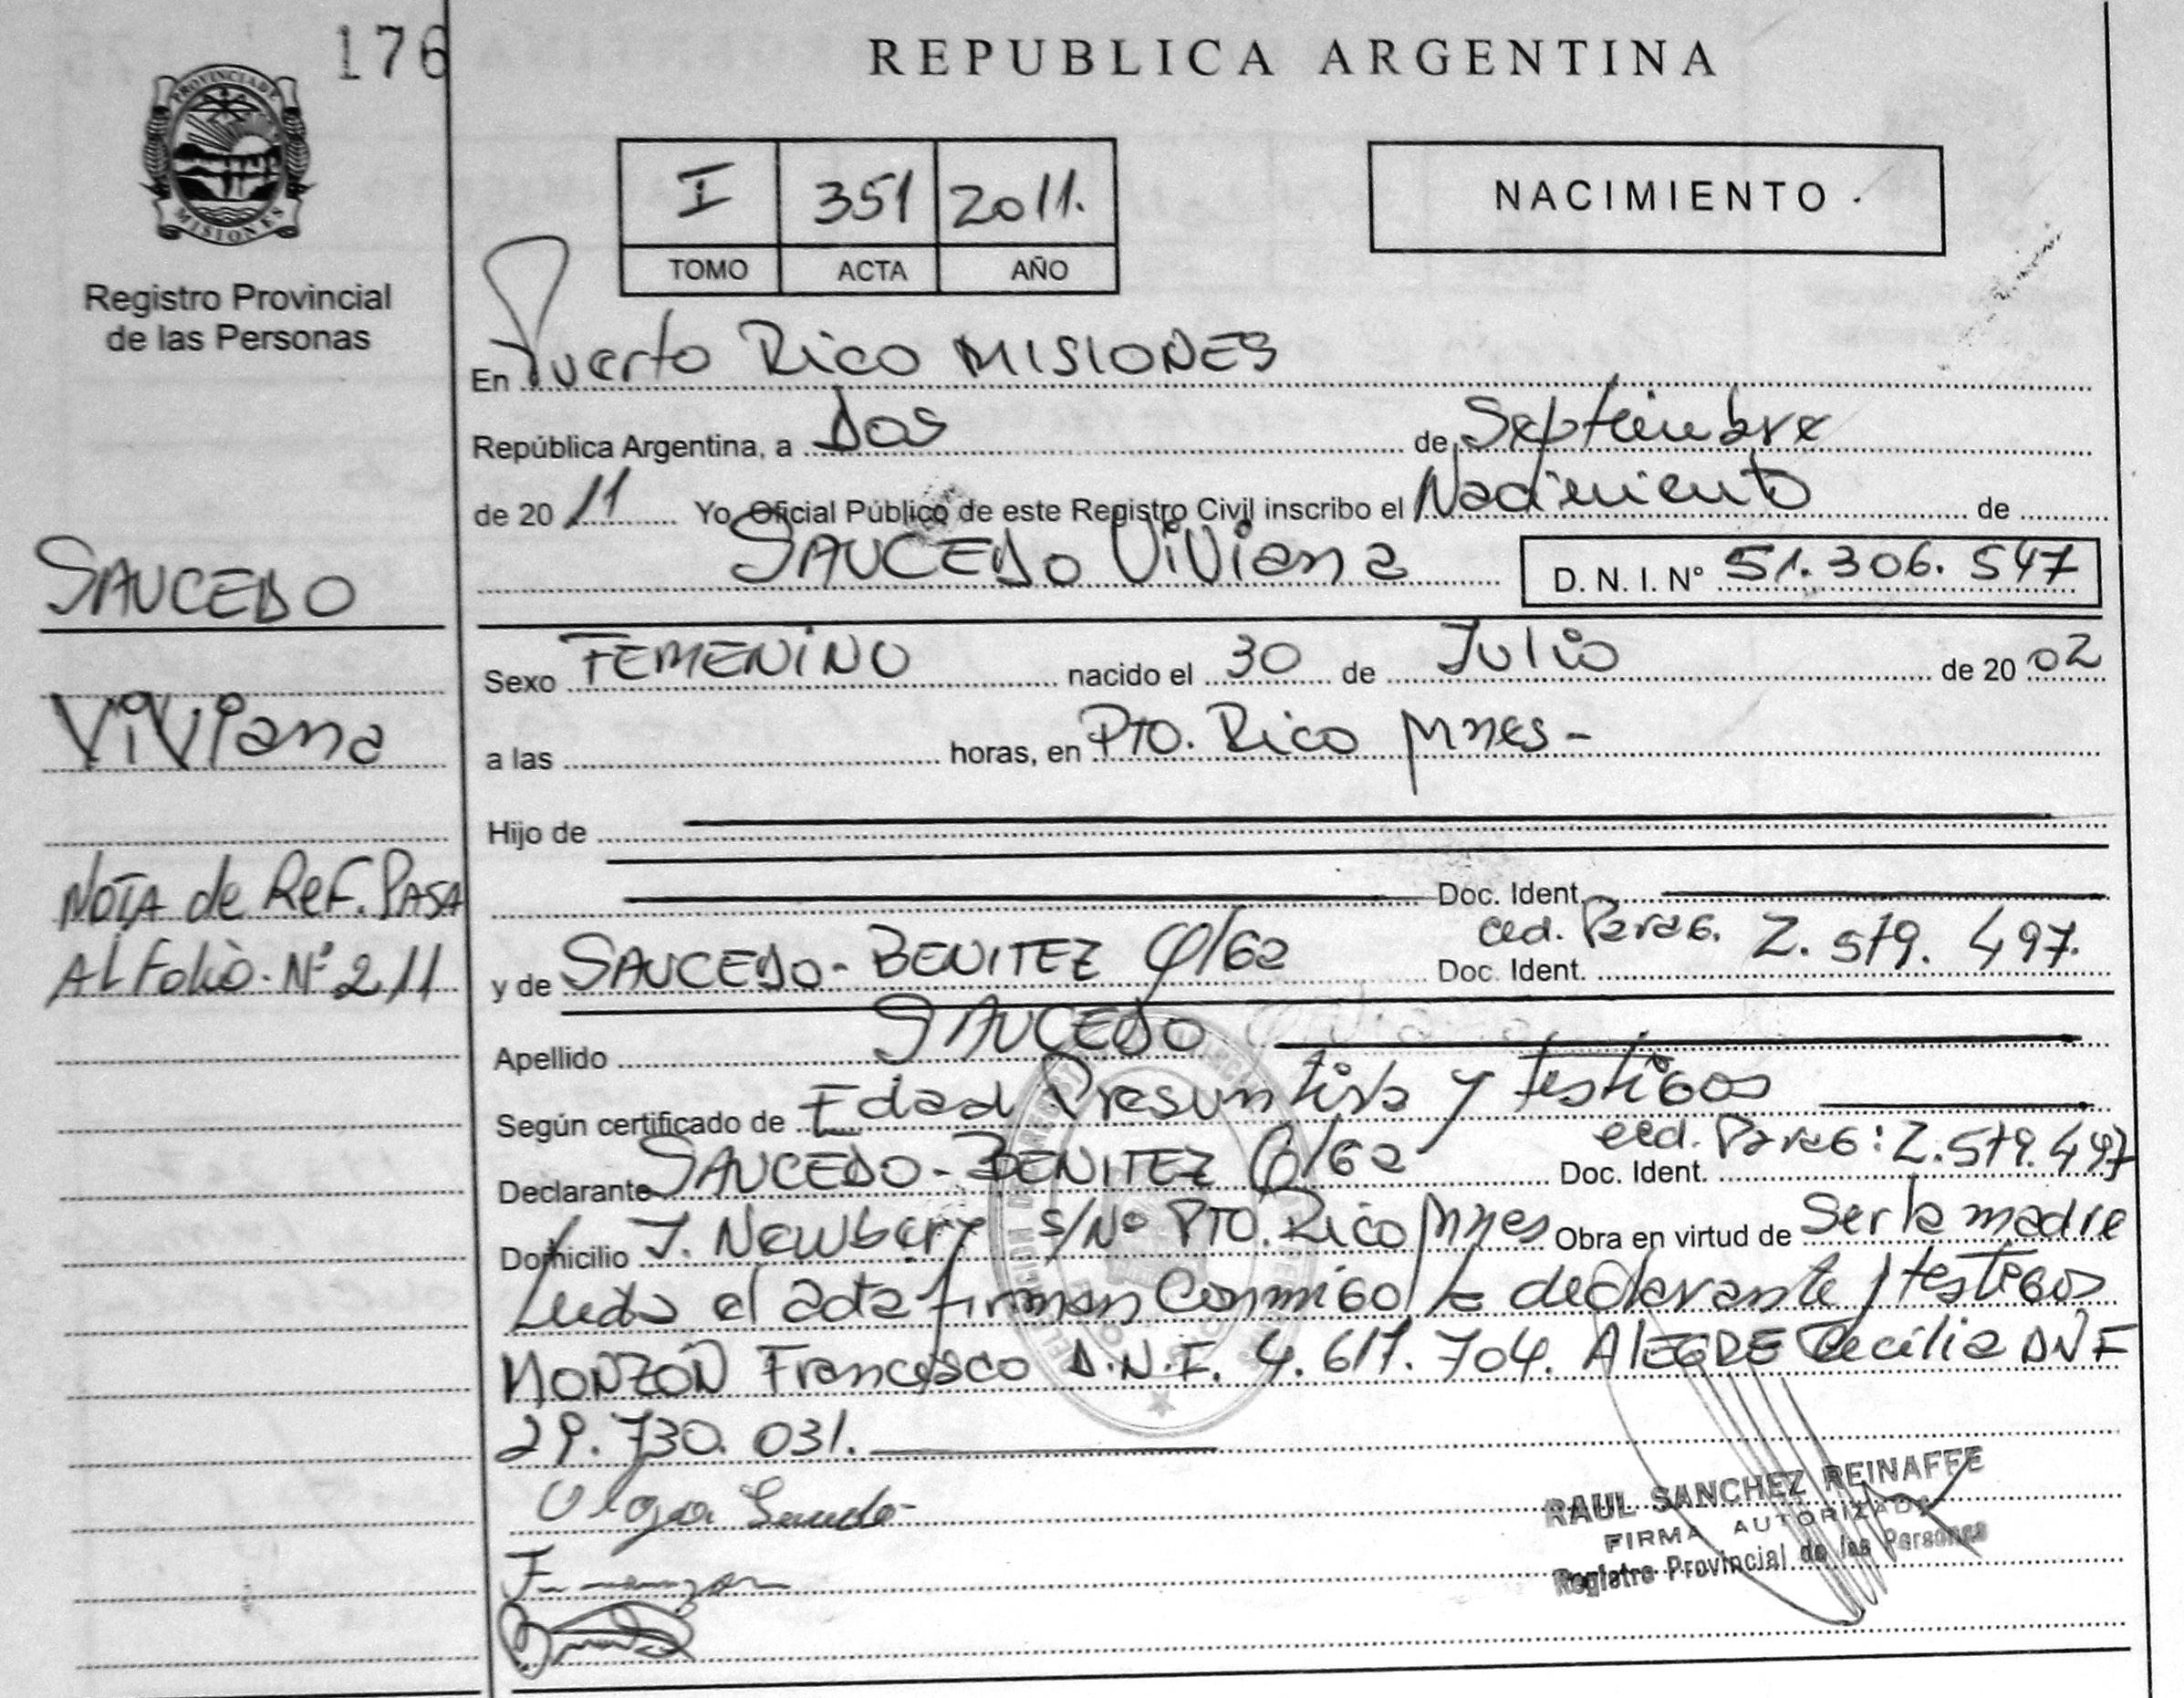 176
REPUBLICA ARGENTINA
PROVINCIA DE
MISIONES
Registro Provincial
de las Personas
I 351 2011.
TOMO ACTA AÑO
NACIMIENTO
En Puerto Rico MISIONES
República Argentina, a Dos de Septiembre
de 20 11 Yo Oficial Público de este Registro Civil inscribo el Nacimiento de
SAUCEDO Viviana D. N. I. Nº 51.306.547
SAUCEDO
Viviana
Sexo FEMENINO nacido el 30 de Julio de 20 02
a las horas, en PTO. Rico Mnes -
Hijo de
Doc. Ident.
NOTA de ReF. PASA
AL Folio. Nº 211
ced. Parag. 2.519.497.
y de SAUCEDO - BENITEZ Olga Doc. Ident.
Apellido SAUCEDO
Según certificado de Edad Presuntiva y testigos
ced. Parag: 2.519.497
Declarante SAUCEDO - BENITEZ Olga Doc. Ident.
Domicilio J. Newbery S/Nº PTO. Rico Mnes Obra en virtud de Ser la madre
Leida el acta firman Conmigo la declarante y testigos
MONZON Francisco D.N.I. 4.617.704. ALEGRE Cecilia DNI
29.730.031.
Olga
RAUL SANCHEZ REINAFFE
FIRMA AUTORIZADA
Registro Provincial de las Personas